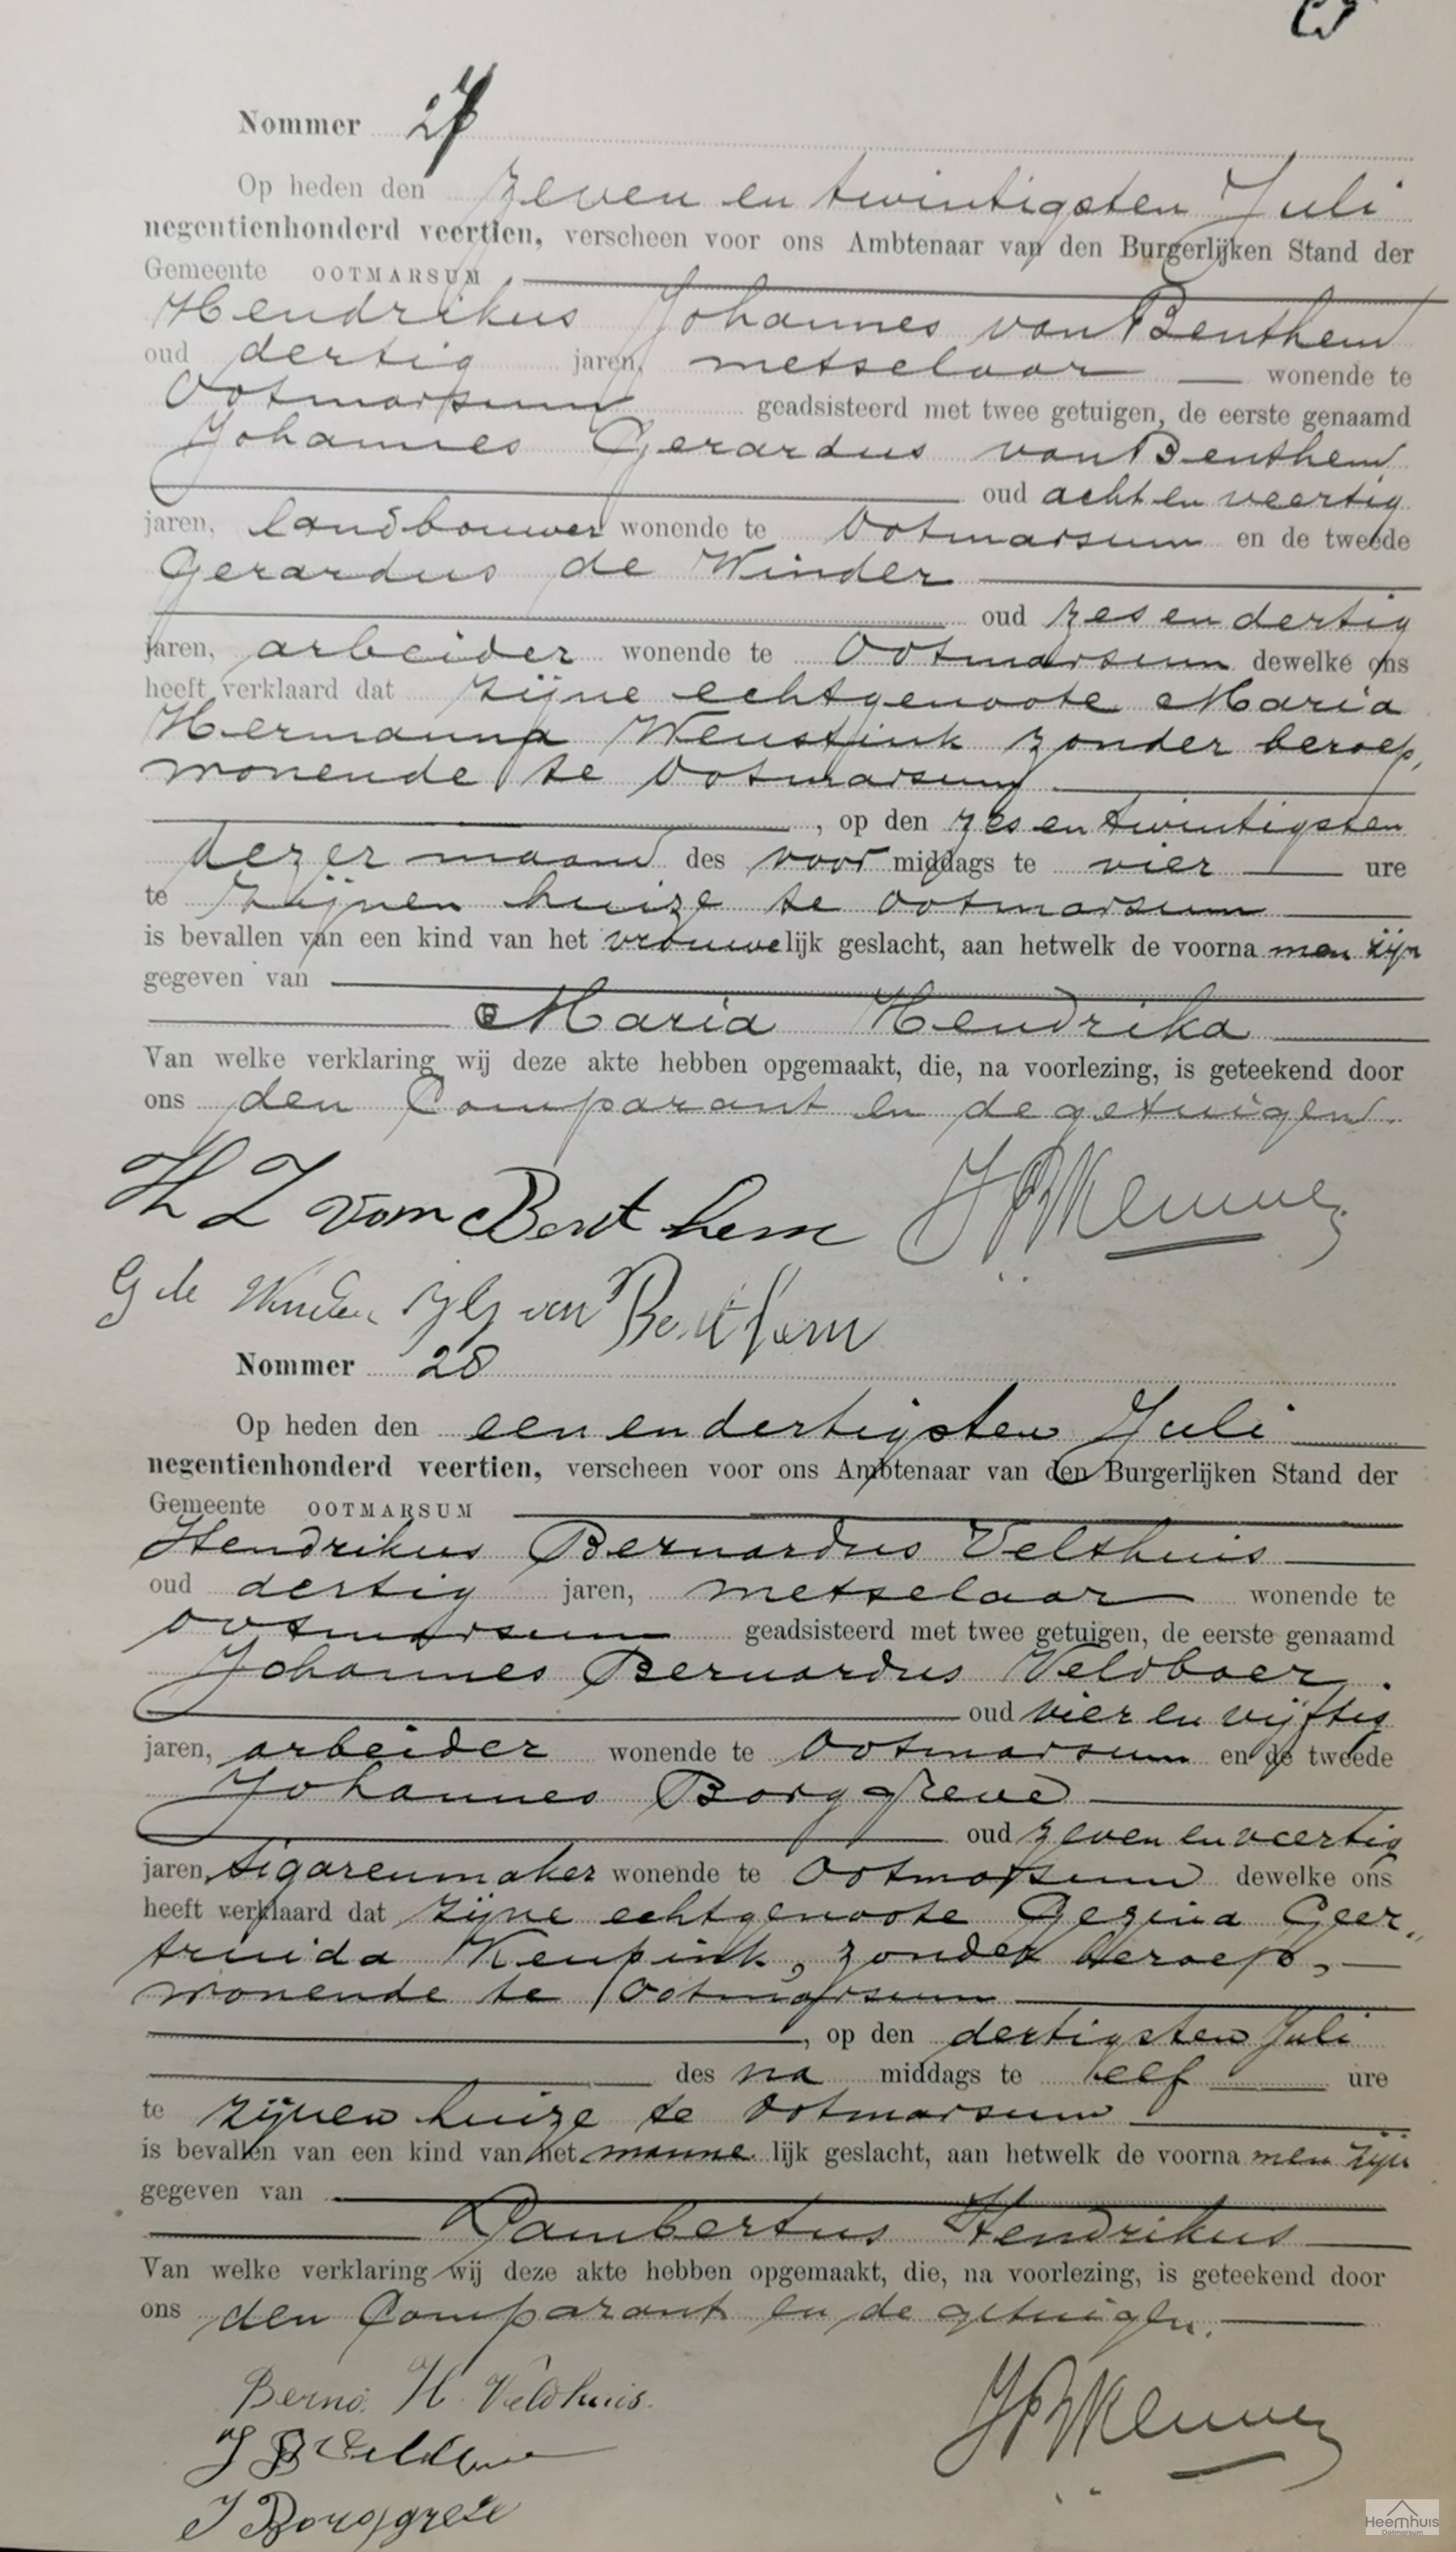 Nommer 27
Op heden den zeven en twintigsten Juli
negentienhonderd veertien, verscheen voor ons Ambtenaar van den Burgerlijken Stand der
Gemeente OOTMARSUM
Hendrikus Johannes van Benthem
oud dertig jaren, metselaar wonende te
Ootmarsum geadsisteerd met twee getuigen, de eerste genaamd
Johannes Gerardus van Benthem
oud acht en veertig
jaren, landbouwer wonende te Ootmarsum en de tweede
Gerardus de Winder
oud zes en dertig
jaren, arbeider wonende te Ootmarsum dewelke ons
heeft verklaard dat zijne echtgenoote Maria
Hermanna Weustink zonder beroep,
wonende te Ootmarsum
, op den zes en twintigsten
dezer maand des voor middags te vier ure
te zijnen huize te Ootmarsum
is bevallen van een kind van het vrouwelijk geslacht, aan hetwelk de voorna men zijn
gegeven van
Maria Hendrika
Van welke verklaring wij deze akte hebben opgemaakt, die, na voorlezing, is geteekend door
ons den Comparant en de getuigen.
H J van Benthem
G de Winder van Benthem
Nommer 28
Op heden den een en dertigsten Juli
negentienhonderd veertien, verscheen voor ons Ambtenaar van den Burgerlijken Stand der
Gemeente OOTMARSUM
Hendrikus Bernardus Velthuis
oud dertig jaren, metselaar wonende te
Ootmarsum geadsisteerd met twee getuigen, de eerste genaamd
Johannes Bernardus Veldboer
oud vier en vijftig
jaren, arbeider wonende te Ootmarsum en de tweede
Johannes Borggreve
oud zeven en veertig
jaren, sigarenmaker wonende te Ootmarsum dewelke ons
heeft verklaard dat zijne echtgenoote Gezina Geer„
truida Keupink, zonder beroep,
wonende te Ootmarsum
, op den dertigsten Juli
des na middags te elf ure
te zijnen huize te Ootmarsum
is bevallen van een kind van het manne lijk geslacht, aan hetwelk de voorna men zijn
gegeven van
Lambertus Hendrikus
Van welke verklaring wij deze akte hebben opgemaakt, die, na voorlezing, is geteekend door
ons den Comparant en de getuigen.
Bernd. H. Veldhuis.
J B
J Borggreve
Heemhuis
Ootmarsum